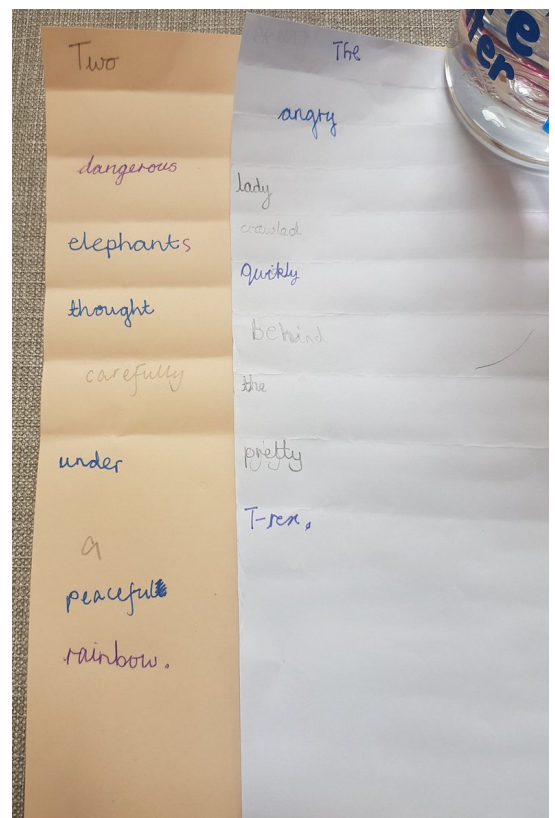 Two
dangerous
elephants
thought
carefully
under
a
peaceful
rainbow.
The
angry
lady
crawled
quikly
behind
the
pretty
T-rex.